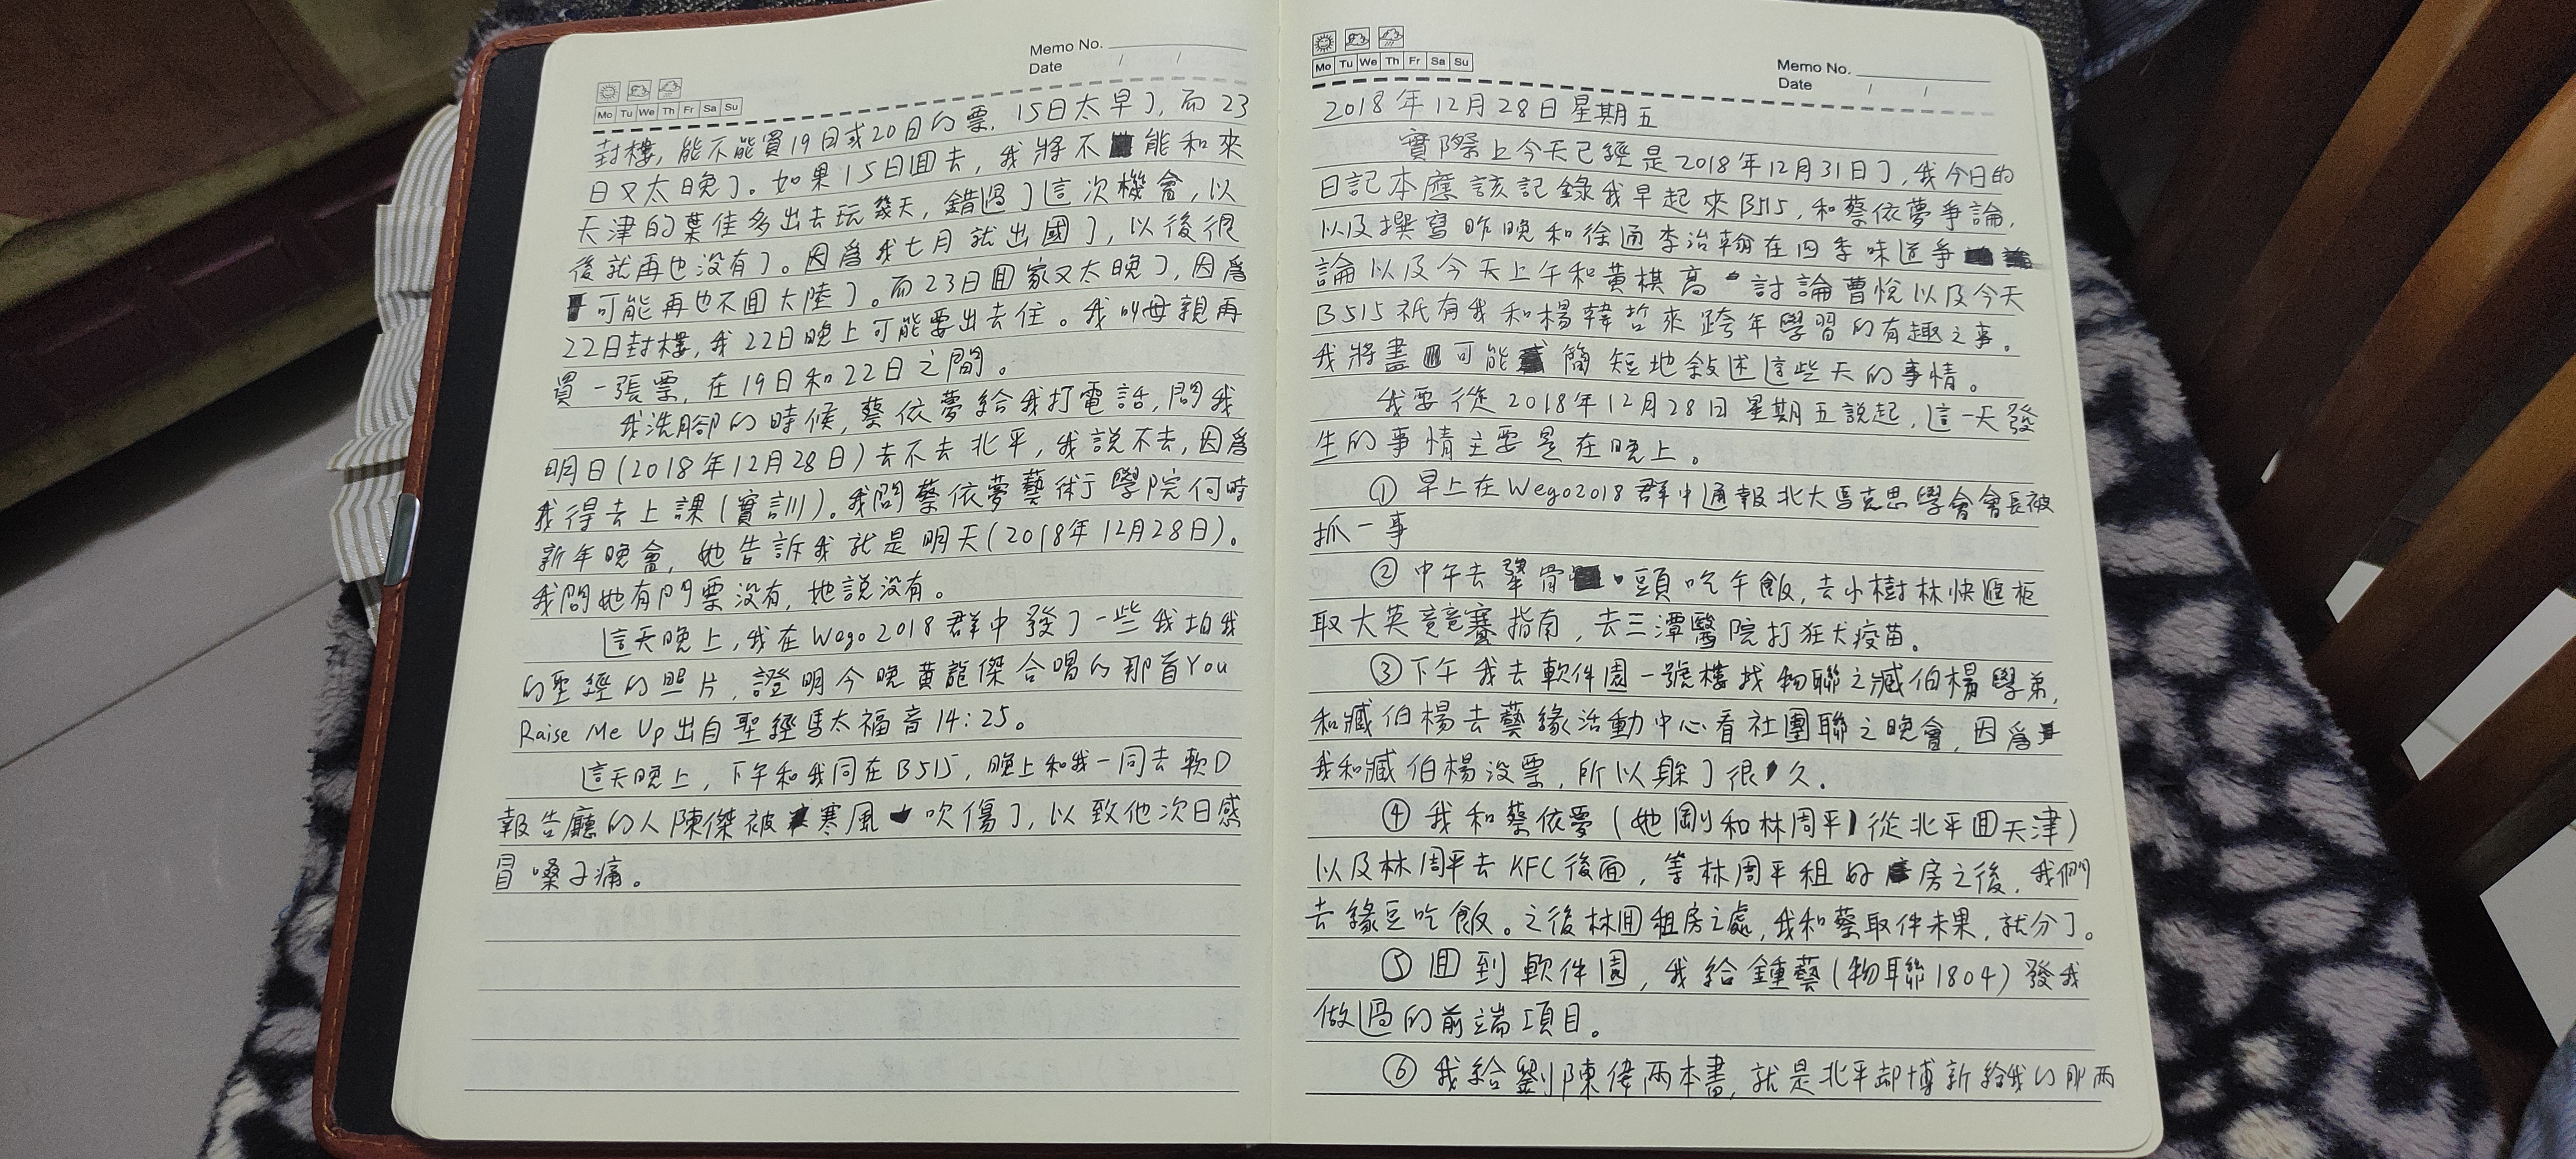 Memo No.
Date / /
Mo Tu We Th Fr Sa Su
封樓，能不能買19日或20日的票，15日太早了，而23
日又太晚了。如果15日回去，我將不能和來
天津的葉佳多出去玩幾天，錯過了這次機會，以
後就再也沒有了。因爲我七月就出國了，以後很
可能再也不回大陸了。而23日回家又太晚了，因爲
22日封樓，我22日晚上可能要出去住。我叫母親再
買一張票，在19日和22日之間。
我洗腳的時候，蔡依夢給我打電話，問我
明日(2018年12月28日)去不去北平，我説不去，因爲
我得去上課(實訓)。我問蔡依夢藝術學院何時
新年晚會，她告訴我就是明天(2018年12月28日)。
我問她有門票没有，她説没有。
這天晚上，我在Wego2018群中發了一些我拍我
的聖經的照片，證明今晚黄龍傑合唱的那首You
Raise Me Up出自聖經馬太福音14:25。
這天晚上，下午和我同在B515，晚上和我一同去軟D
報告廳的人陳傑被寒風吹傷了，以致他次日感
冒嗓子痛。
Memo No.
Date / /
Mo Tu We Th Fr Sa Su
2018年12月28日星期五
實際上今天已經是2018年12月31日了，我今日的
日記本應該記錄我早起來B515，和蔡依夢爭論，
以及撰寫昨晚和徐通李治翰在四季味道爭
論以及今天上午和黄棋高討論曹悅以及今天
B515祇有我和楊韓哲來跨年學習的有趣之事。
我將盡可能簡短地敍述這些天的事情。
我要從2018年12月28日星期五説起，這一天發
生的事情主要是在晚上。
① 早上在Wego2018群中通報北大馬克思學會會長被
抓一事
② 中午去犟骨頭吃午飯，去小樹林快遞柜
取大英競賽指南，去三潭醫院打狂犬疫苗。
③下午我去軟件園一號樓找物聯之臧伯楊學弟，
和臧伯楊去藝緣活動中心看社團聯之晚會，因爲
我和臧伯楊没票，所以躲了很久。
④ 我和蔡依夢(她剛和林周平從北平回天津)
以及林周平去KFC後面，等林周平租好房之後，我們
去緣豆吃飯。之後林回租房之處，我和蔡取件未果，就分了。
⑤ 回到軟件園，我給鍾藝(物聯1804)發我
做過的前端項目。
⑥ 我給劉陳偉兩本書，就是北平邵博新給我的那兩